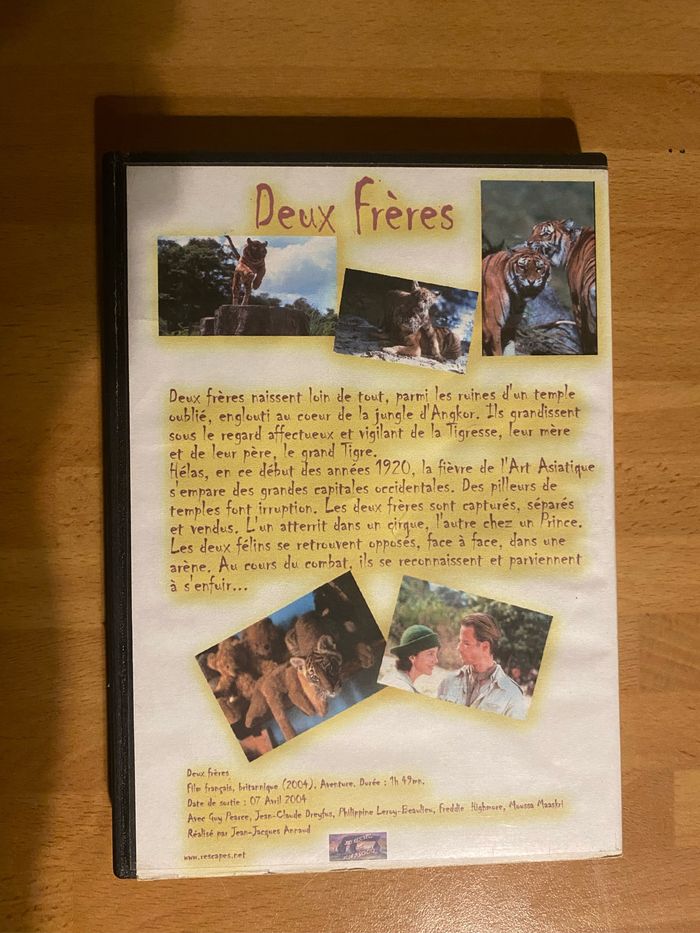 Deux Frères
Deux frères naissent loin de tout, parmi les ruines d'un temple
oublié, englouti au coeur de la jungle d'Angkor. Ils grandissent
sous le regard affectueux et vigilant de la Tigresse, leur mère
et de leur père, le grand Tigre.
Hélas, en ce début des années 1920, la fièvre de l'Art Asiatique
s'empare des grandes capitales occidentales. Des pilleurs de
temples font irruption. Les deux frères sont capturés, séparés
et vendus. L'un atterrit dans un cirque, l'autre chez un Prince.
Les deux félins se retrouvent opposés, face à face, dans une
arène. Au cours du combat, ils se reconnaissent et parviennent
à s'enfuir...
Deux frères
Film français, britannique (2004). Aventure. Durée : 1h 49mn.
Date de sortie : 07 Avril 2004
Avec Guy Pearce, Jean-Claude Dreyfus, Philippine Leroy-Beaulieu, Freddie Highmore, Moussa Maaskri
Réalisé par Jean-Jacques Annaud
www.rescapes.net